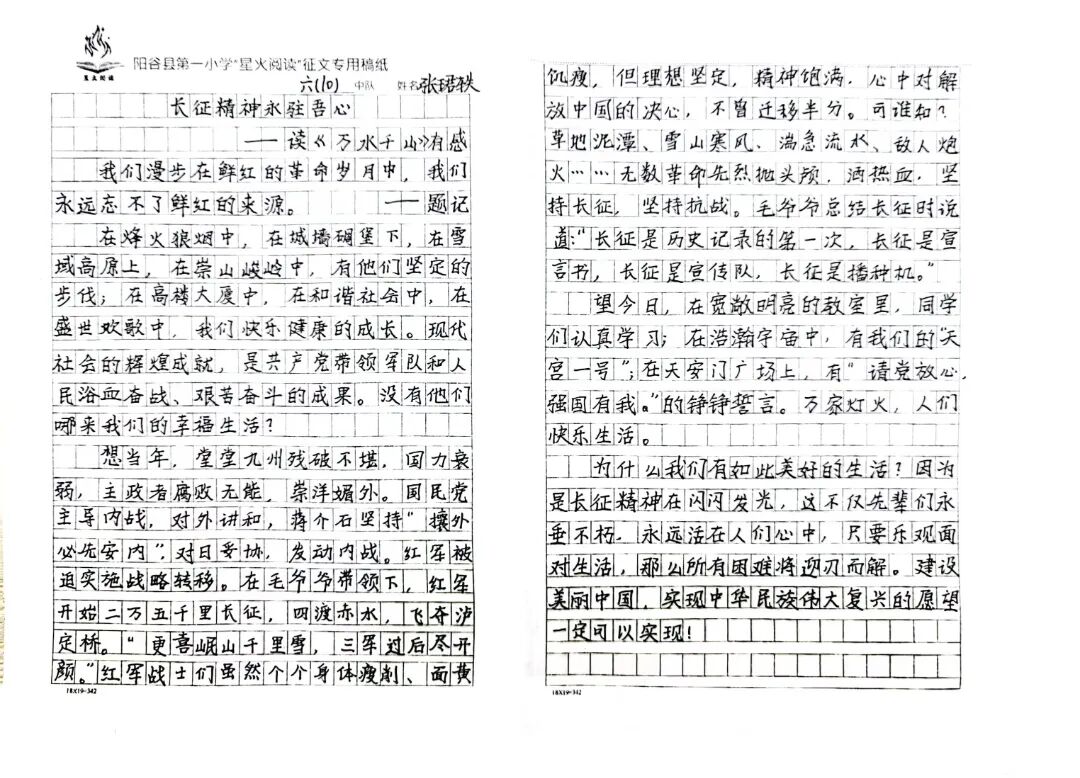 星火阅读
阳谷县第一小学"星火阅读"征文专用稿纸
六(10) 中队 姓名 张珺轶
长征精神永驻吾心
——读《万水千山》有感
我们漫步在鲜红的革命岁月中，我们
永远忘不了鲜红的来源。 ——题记
在烽火狼烟中，在城墙碉堡下，在雪
域高原上，在崇山峻岭中，有他们坚定的
步伐；在高楼大厦中，在和谐社会中，在
盛世欢歌中，我们快乐健康的成长。现代
社会的辉煌成就，是共产党带领军队和人
民浴血奋战、艰苦奋斗的成果。没有他们
哪来我们的幸福生活？
想当年，堂堂九州残破不堪，国力衰
弱，主政者腐败无能，崇洋媚外。国民党
主导内战，对外讲和，蒋介石坚持"攘外
必先安内"，对日妥协，发动内战。红军被
迫实施战略转移。在毛爷爷带领下，红军
开始二万五千里长征，四渡赤水，飞夺泸
定桥。"更喜岷山千里雪，三军过后尽开
颜。"红军战士们虽然个个身体瘦削、面黄
18X19=342
饥瘦，但理想坚定，精神饱满，心中对解
放中国的决心，不曾迁移半分。可谁知？
草地泥潭、雪山寒风、湍急流水、敌人炮
火……无数革命先烈抛头颅，洒热血，坚
持长征，坚持抗战。毛爷爷总结长征时说
道："长征是历史记录的第一次，长征是宣
言书，长征是宣传队，长征是播种机。"
望今日，在宽敞明亮的教室里，同学
们认真学习；在浩瀚宇宙中，有我们的"天
宫一号"；在天安门广场上，有"请党放心，
强国有我。"的铮铮誓言。万家灯火，人们
快乐生活。
为什么我们有如此美好的生活？因为
是长征精神在闪闪发光，这不仅先辈们永
垂不朽，永远活在人们心中，只要乐观面
对生活，那么所有困难将迎刃而解。建设
美丽中国，实现中华民族伟大复兴的愿望
一定可以实现！
18X19=342